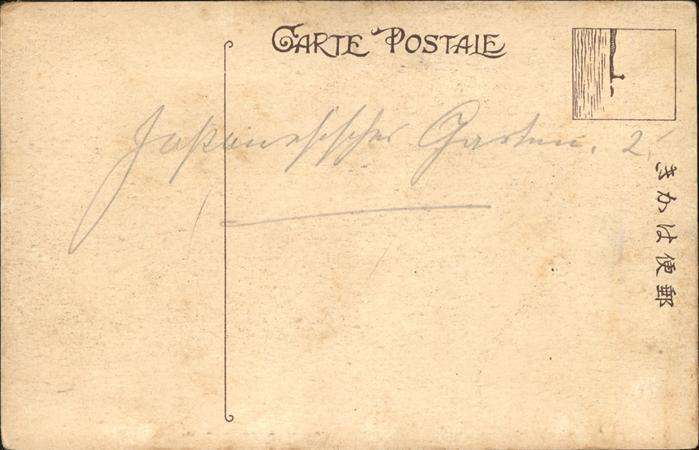 CARTE POSTALE
Japanischer Garten. 2.
きかは便郵